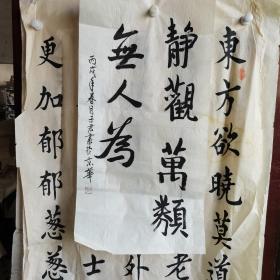 東方欲曉莫道
靜觀萬類
無人為
丙戌年春月子君書於京華
老
外
士
更加郁郁蔥蔥